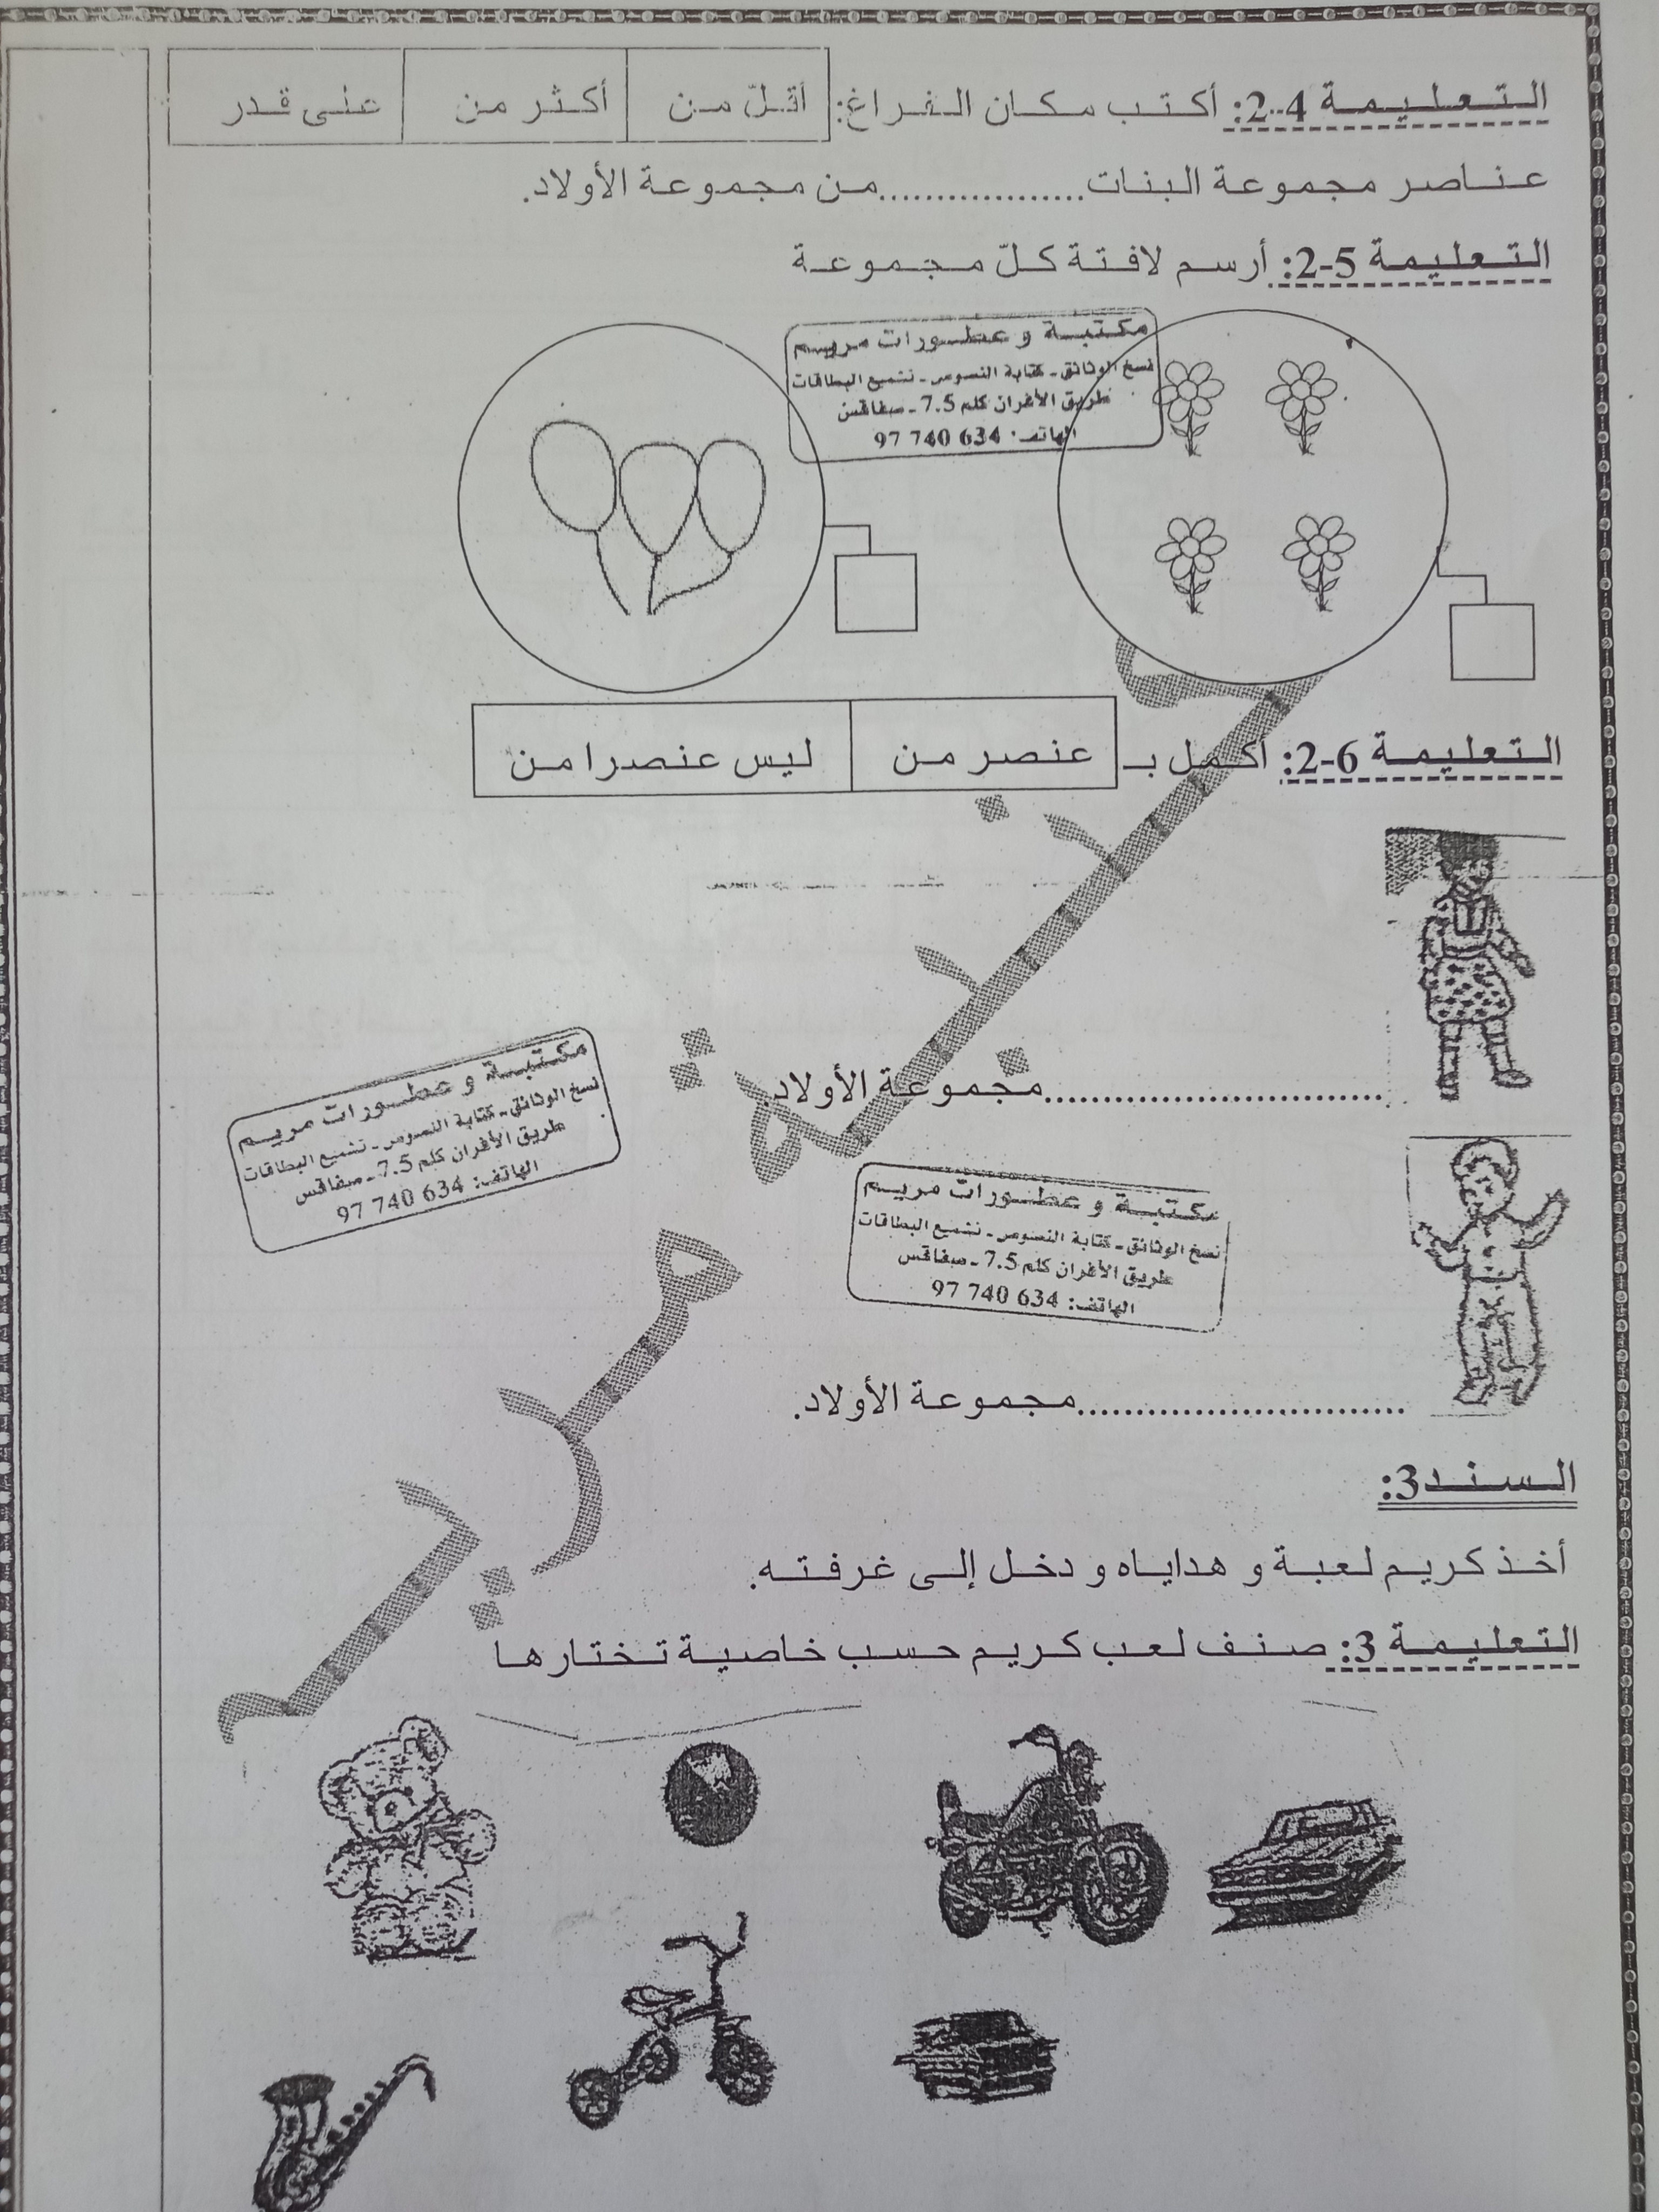 التعليمة 4-2: أكتب مكان الفراغ: أقلّ من أكثر من على قدر
عناصر مجموعة البنات..................من مجموعة الأولاد.
التعليمة 5-2: أرسم لافتة كلّ مجموعة
مكتبة و عطورات مريم
نسخ الوثائق - كتابة النصوص - تشميع البطاقات
طريق الأفران كلم 7.5 - صفاقس
الهاتف: 634 740 97
التعليمة 6-2: أكمل بـ عنصر من ليس عنصرا من
..............................مجموعة الأولاد.
مكتبة و عطورات مريم
نسخ الوثائق - كتابة النصوص - تشميع البطاقات
طريق الأفران كلم 7.5 - صفاقس
الهاتف: 634 740 97
مكتبة و عطورات مريم
نسخ الوثائق - كتابة النصوص - تشميع البطاقات
طريق الأفران كلم 7.5 - صفاقس
الهاتف: 634 740 97
.............................مجموعة الأولاد.
مكتبة مريم
السند3:
أخذ كريم لعبة و هداياه و دخل إلى غرفته.
التعليمة 3: صنف لعب كريم حسب خاصية تختارها